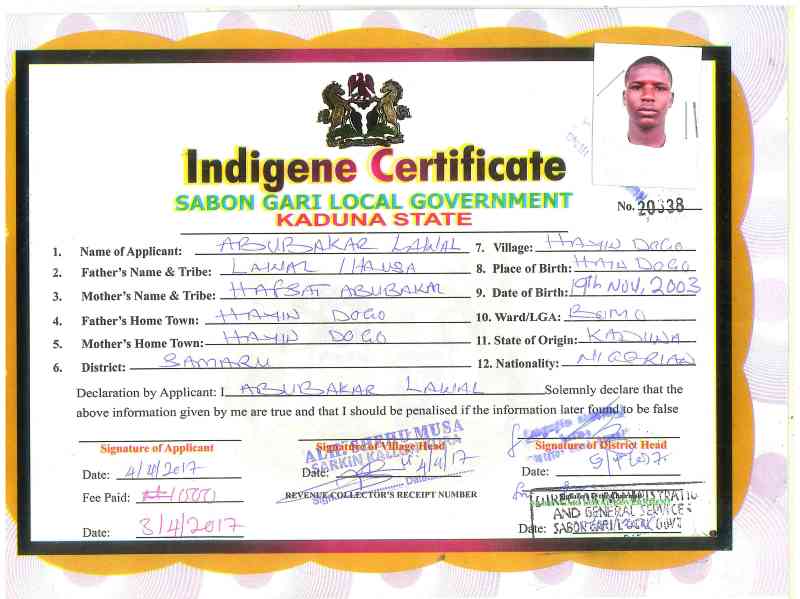 Indigene Certificate
SABON GARI LOCAL GOVERNMENT
KADUNA STATE
No. 20338
1. Name of Applicant: ABUBAKAR LAWAL 7. Village: HAYIN DOGO
2. Father's Name & Tribe: LAWAL / HAUSA 8. Place of Birth: HAYIN DOGO
3. Mother's Name & Tribe: HAFSAT ABUBAKAR 9. Date of Birth: 19th NOV, 2003
4. Father's Home Town: HAYIN DOGO 10. Ward/LGA: BOMO
5. Mother's Home Town: HAYIN DOGO 11. State of Origin: KADUNA
6. District: SAMARU 12. Nationality: NIGERIAN
Declaration by Applicant: I ABUBAKAR LAWAL Solemnly declare that the
above information given by me are true and that I should be penalised if the information later found to be false
Signature of Applicant Signature of Village Head Signature of District Head
ALH. SHEHU MUSA
SARKIN
Date: 4/4/2017 Date: 4/4/17 Date:
Fee Paid: REVENUE COLLECTOR'S RECEIPT NUMBER
AND GENERAL SERVICE
Date: 3/4/2017 Date: SABON GARI